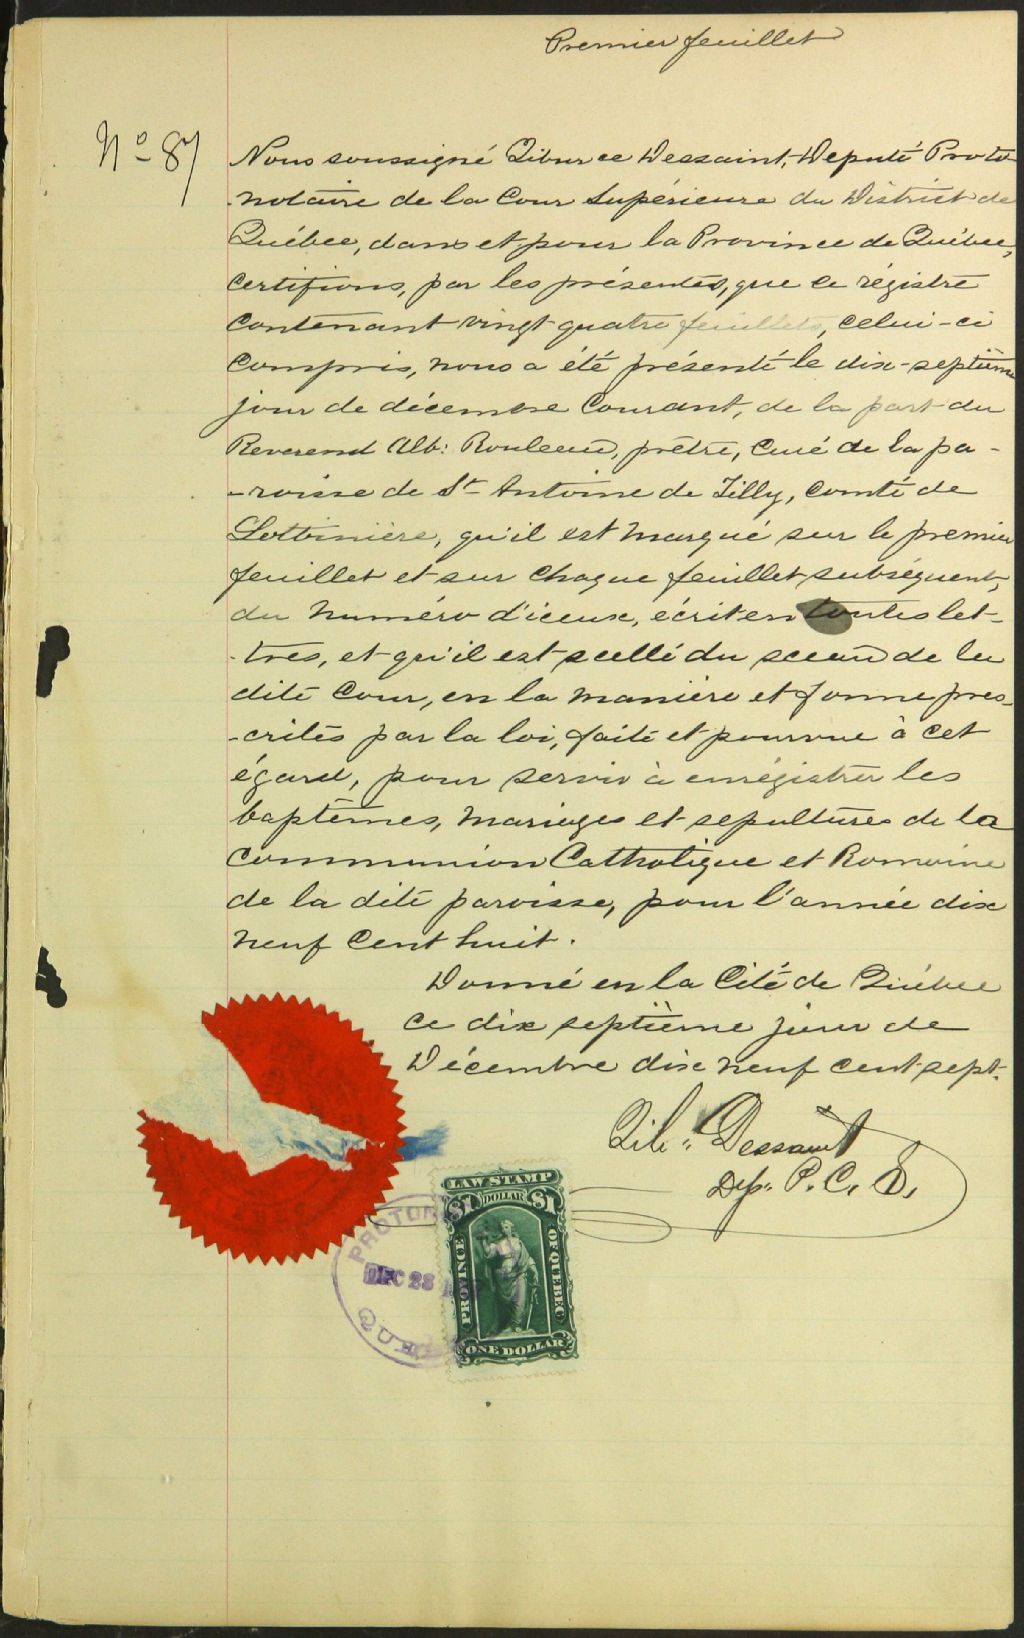 Premier feuillet
No 87
Nous soussigné Tiburce Dessaint, Deputé Proto
-notaire de la Cour Supérieure du District de
Québec, dans et pour la Province de Québec,
certifions, par les présentes, que ce régistre
contenant vingt quatre feuillets, celui-ci
compris, nous a été présenté le dix-septième
jour de décembre courant, de la part du
Reverend Alb: Rouleau, prêtre, curé de la pa-
-roisse de St Antoine de Tilly, comté de
Lotbinière, qu'il est marqué sur le premier
feuillet et sur chaque feuillet subséquent,
du numéro d'iceux, écrit en toutes let-
-tres, et qu'il est scellé du sceau de la
dite Cour, en la manière et forme pres-
-crites par la loi, faite et pourvue à cet
égard, pour servir à enrégistrer les
baptêmes, mariages et sepultures de la
communion Catholique et Romaine
de la dite paroisse, pour l'année dix
neuf cent huit.
Donné en la Cité de Québec
ce dix septième jour de
Décembre dix neuf cent sept.
Tib: Dessaint
Dep. P. C. S.
LAW STAMP
$1 DOLLAR $1
PROVINCE OF QUEBEC
ONE DOLLAR
DEC 28